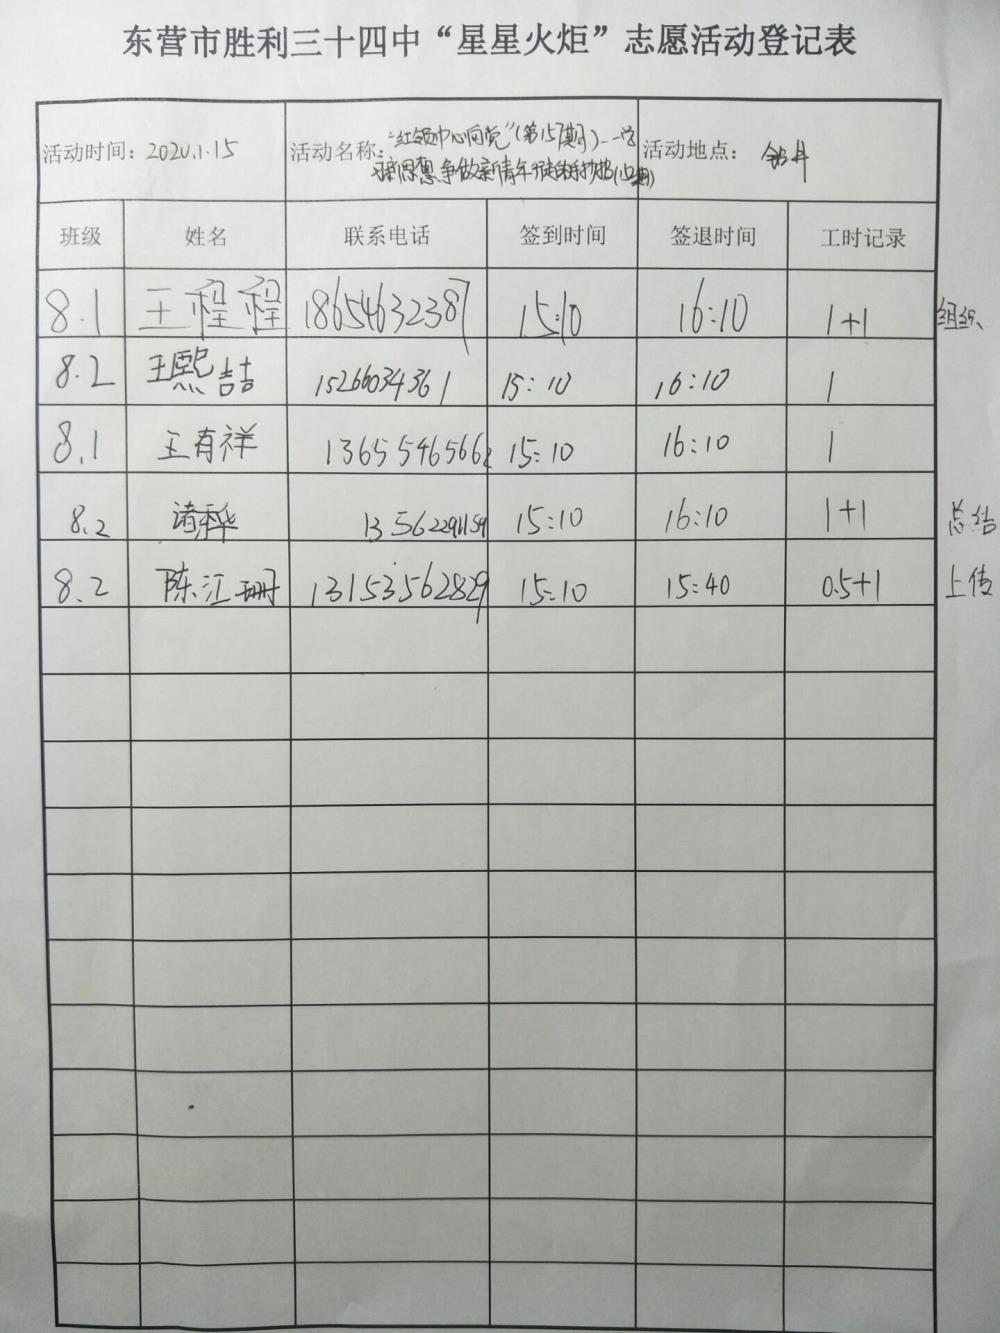 东营市胜利三十四中“星星火炬”志愿活动登记表
活动时间：2020.1.15 活动名称：“红领巾心向党”（第15期）——学 活动地点：钻井
习新思想争做新青年
班级 姓名 联系电话 签到时间 签退时间 工时记录
8.1 王程程 18654632387 15:10 16:10 1+1 组织
8.2 王熙喆 15266034361 15:10 16:10 1
8.1 王有祥 13655465662 15:10 16:10 1
8.2 13562291159 15:10 16:10 1+1 总结
8.2 陈江珊 13153562829 15:10 15:40 0.5+1 上传